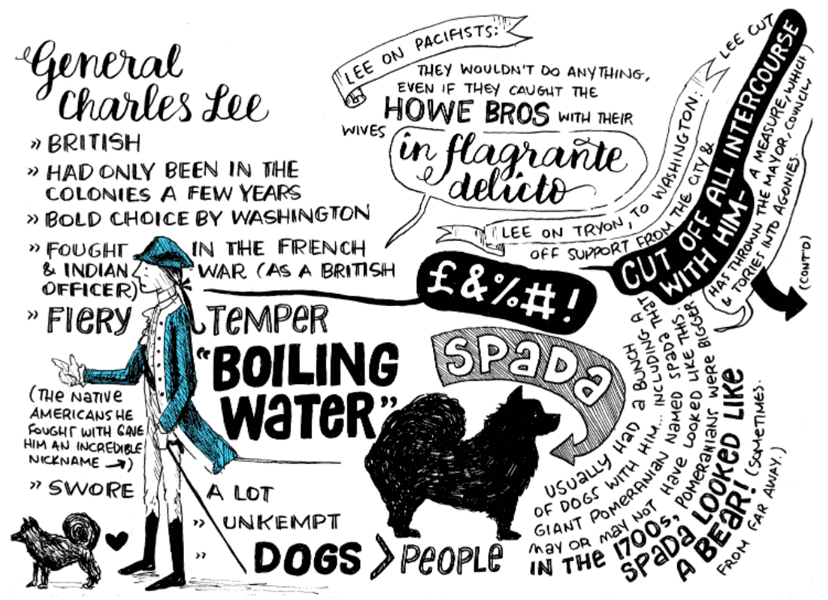 General
Charles Lee
» BRITISH
» HAD ONLY BEEN IN THE
COLONIES A FEW YEARS
» BOLD CHOICE BY WASHINGTON
» FOUGHT IN THE FRENCH
& INDIAN WAR (AS A BRITISH
OFFICER)
» FIERY TEMPER
"BOILING
WATER"
(THE NATIVE
AMERICANS HE
FOUGHT WITH GAVE
HIM AN INCREDIBLE
NICKNAME →)
» SWORE A LOT
» UNKEMPT
» DOGS > PEOPLE
LEE ON PACIFISTS:
THEY WOULDN'T DO ANYTHING,
EVEN IF THEY CAUGHT THE
HOWE BROS WITH THEIR
WIVES
in flagrante
delicto
LEE ON TRYON, TO WASHINGTON: LEE CUT
OFF SUPPORT FROM THE CITY &
CUT OFF ALL INTERCOURSE
WITH HIM—
A MEASURE, WHICH
HAS THROWN THE MAYOR, COUNCIL
& TORIES INTO AGONIES.
(CONT'D)
£&%#!
SPADA
USUALLY HAD A BUNCH
OF DOGS WITH HIM... INCLUDING A
GIANT POMERANIAN NAMED SPADA THAT
MAY OR MAY NOT HAVE LOOKED LIKE THIS.
IN THE 1700s, POMERANIANS WERE BIGGER.
SPADA LOOKED LIKE
A BEAR! (SOMETIMES.
FROM FAR AWAY.)